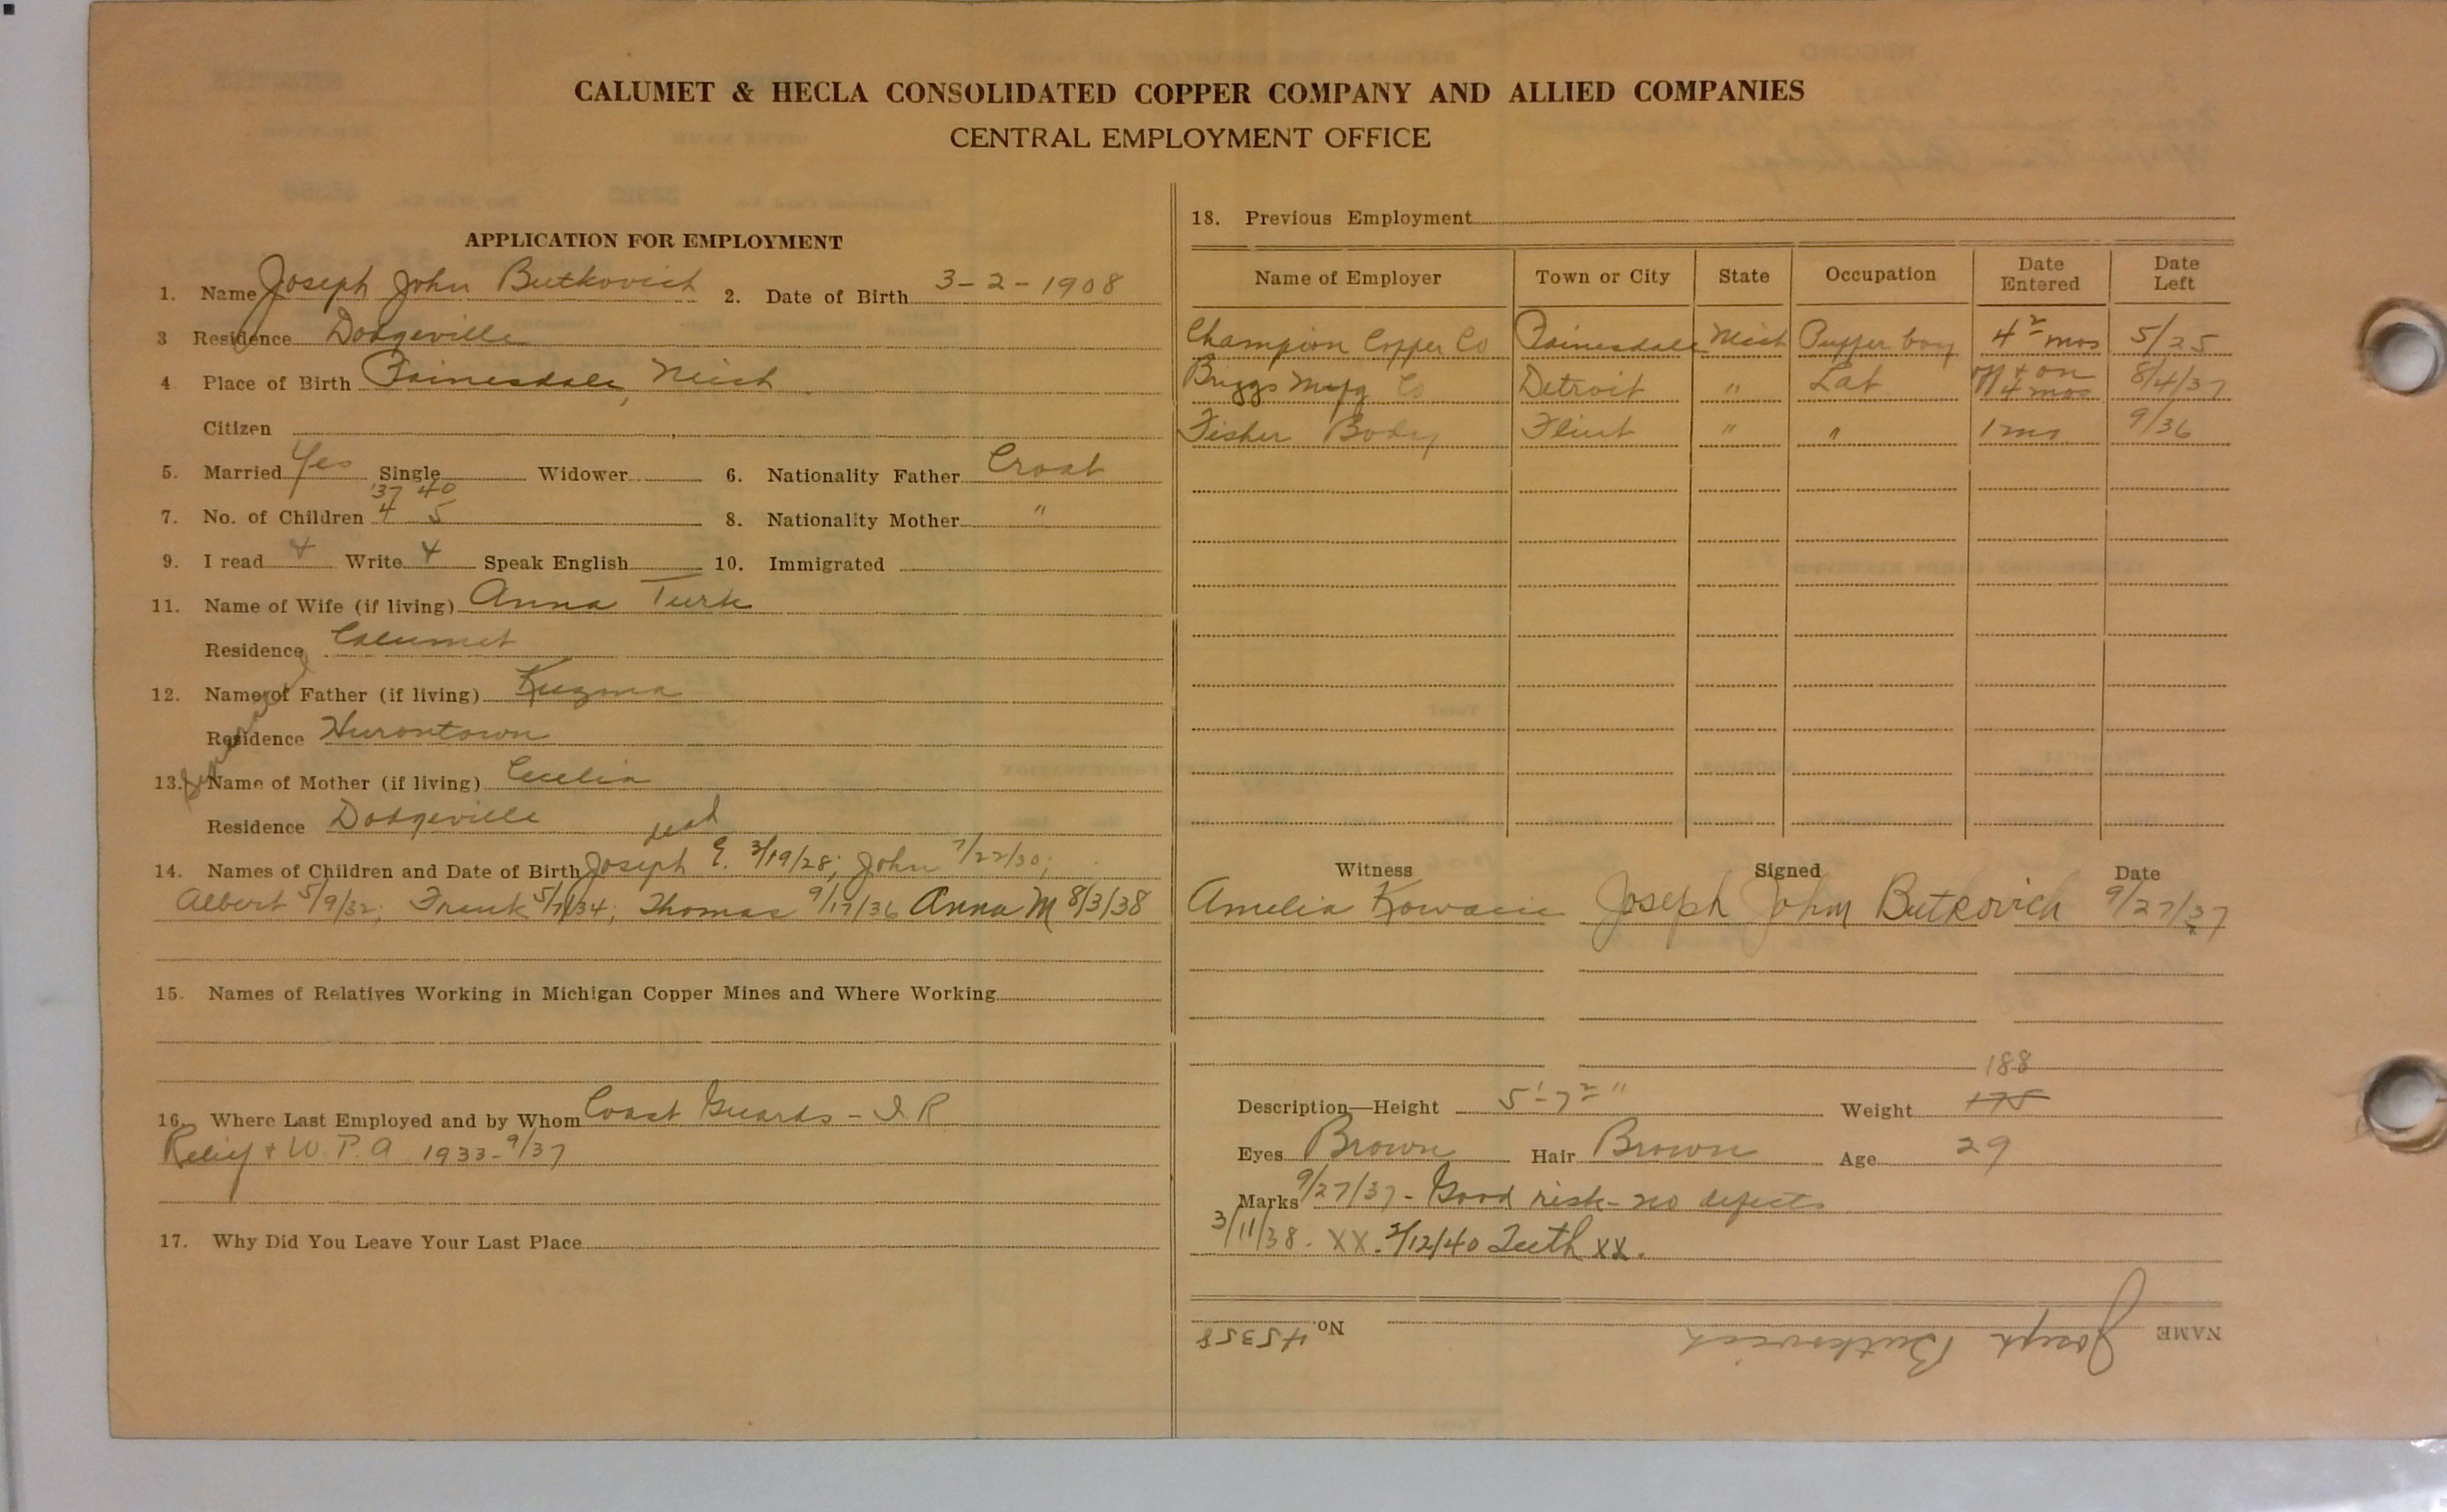 CALUMET & HECLA CONSOLIDATED COPPER COMPANY AND ALLIED COMPANIES
CENTRAL EMPLOYMENT OFFICE
APPLICATION FOR EMPLOYMENT
1. Name Joseph John Butkovich 2. Date of Birth 3-2-1908
3 Residence Dodgeville
4 Place of Birth Painesdale, Mich
Citizen
5. Married Yes Single Widower 6. Nationality Father Croat
'37 40
7. No. of Children 4 5 8. Nationality Mother "
9. I read Write Speak English 10. Immigrated
11. Name of Wife (if living) Anna Turk
Residence Calumet
12. Name of Father (if living) Kuzma
Residence Hurontown
13. Name of Mother (if living) Cecelia
Residence Dodgeville
dead
14. Names of Children and Date of Birth Joseph E. 3/19/28; John 7/22/30;
Albert 5/9/32; Frank 5/7/34; Thomas 9/17/36 Anna M 8/3/38
15. Names of Relatives Working in Michigan Copper Mines and Where Working
16. Where Last Employed and by Whom Coast Guards - I.R
Relief + W.P.A 1933-9/37
17. Why Did You Leave Your Last Place
18. Previous Employment
Name of Employer Town or City State Occupation Date Entered Date Left
Champion Copper Co Painesdale Mich Puffer boy 4 mos 5/25
Briggs Mufg Co Detroit " Lab off + on 4 mos 8/4/37
Fisher Body Flint " " 1 mo 9/36
Witness Signed Date
Amelia Joseph John Butkovich 9/27/37
188
Description—Height 5'-7 " Weight 175
Eyes Brown Hair Brown Age 29
Marks 9/27/37 - Good risk - no defects
3/11/38. XX. 2/12/40 Teeth XX.
NAME Joseph Butkovich No. 45358